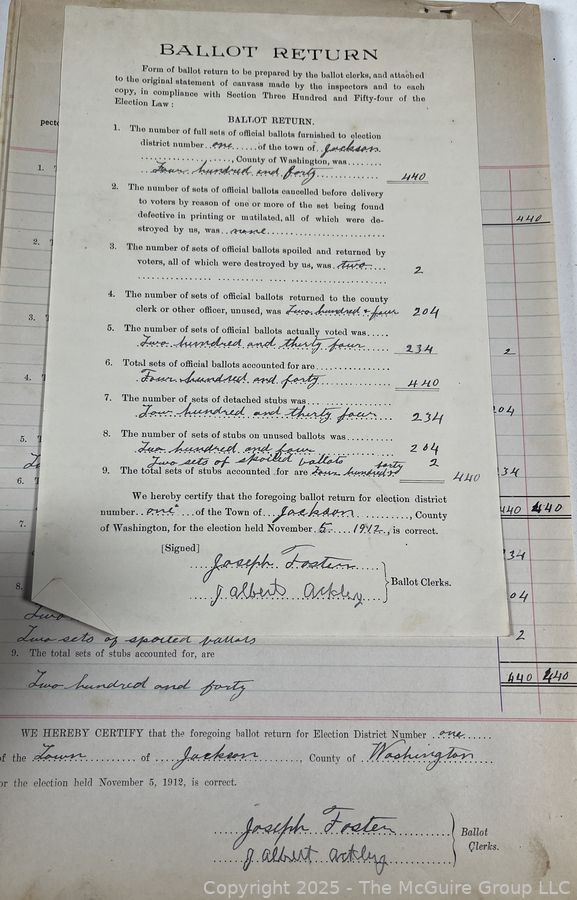 BALLOT RETURN
Form of ballot return to be prepared by the ballot clerks, and attached
to the original statement of canvass made by the inspectors and to each
copy, in compliance with Section Three Hundred and Fifty-four of the
Election Law:
BALLOT RETURN.
1. The number of full sets of official ballots furnished to election
district number one of the town of Jackson
, County of Washington, was
Four hundred and forty 440
2. The number of sets of official ballots cancelled before delivery
to voters by reason of one or more of the set being found
defective in printing or mutilated, all of which were de-
stroyed by us, was none
3. The number of sets of official ballots spoiled and returned by
voters, all of which were destroyed by us, was two 2
4. The number of sets of official ballots returned to the county
clerk or other officer, unused, was Two hundred & four 204
5. The number of sets of official ballots actually voted was
Two hundred and thirty four 234
6. Total sets of official ballots accounted for are
Four hundred and forty 440
7. The number of sets of detached stubs was
Two hundred and thirty four 234
8. The number of sets of stubs on unused ballots was
Two hundred and four 204
Two sets of spoiled ballots 2
9. The total sets of stubs accounted for are four hundred forty 440
We hereby certify that the foregoing ballot return for election district
number one of the Town of Jackson, County
of Washington, for the election held November 5 1912, is correct.
[Signed]
Joseph Foster
J Albert Ackley
Ballot Clerks.
pect
1. T
440
2. T
3. T
2
4. T
204
5. T
234
6. T
440 440
7.
234
8.
204
Two
Two sets of spoiled ballots 2
9. The total sets of stubs accounted for, are
440 440
Two hundred and forty
WE HEREBY CERTIFY that the foregoing ballot return for Election District Number one
of the Town of Jackson, County of Washington
or the election held November 5, 1912, is correct.
Joseph Foster
J Albert Ackley
Ballot
Clerks.
Copyright 2025 - The McGuire Group LLC